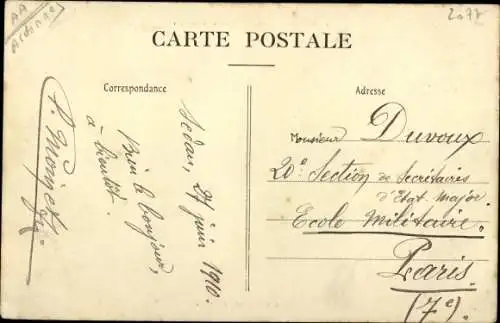 AA
Ardenne
2077
CARTE POSTALE
Correspondance
Adresse
Sedan, 27 juin 1910.
Bien le bonjour,
à bientôt.
Monsieur Duvoux
20e Section de Secrétaires
d'Etat Major.
Ecole Militaire.
Paris
(7e)